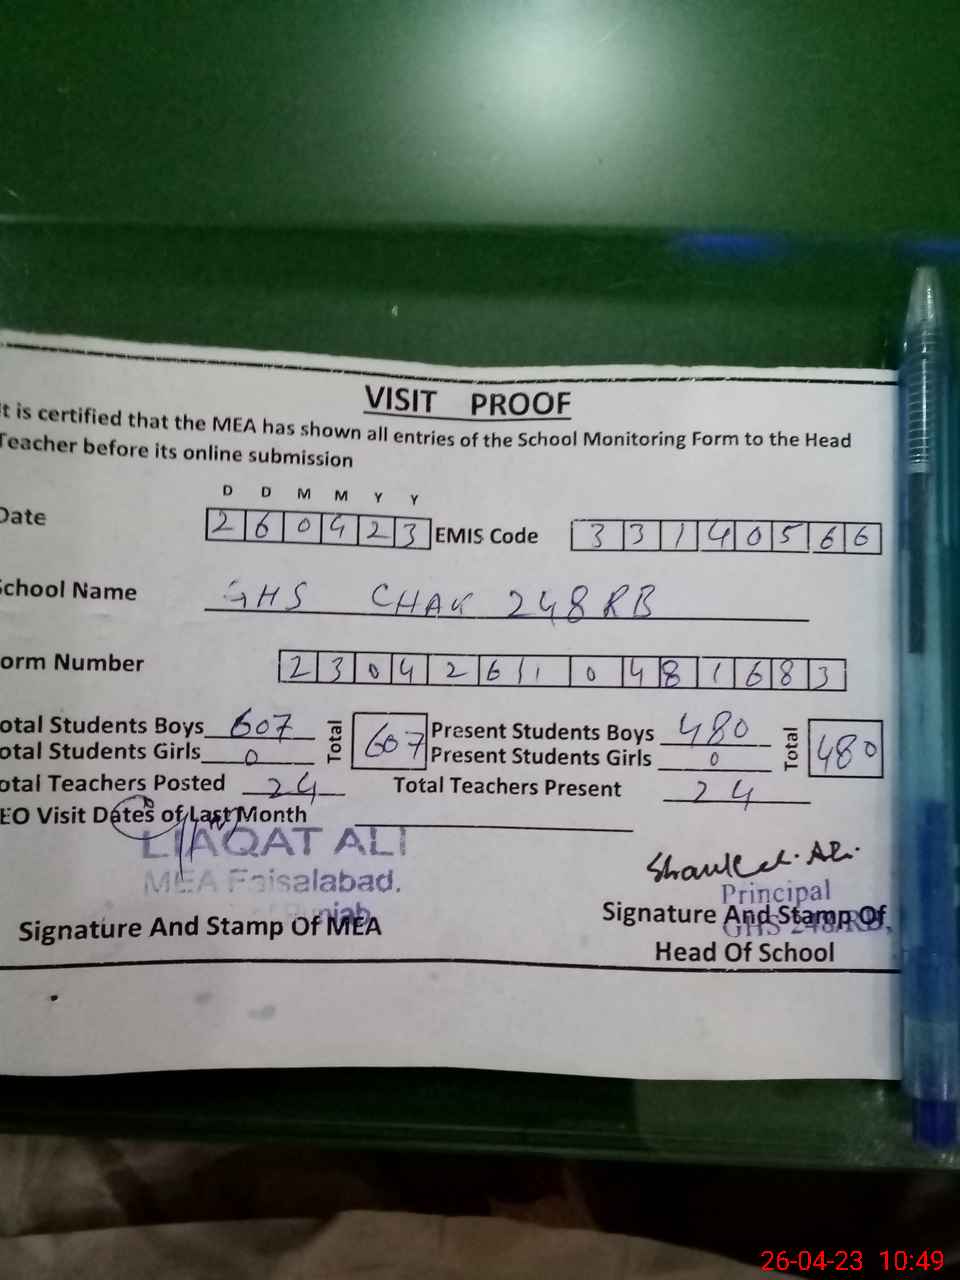 VISIT PROOF
It is certified that the MEA has shown all entries of the School Monitoring Form to the Head
Teacher before its online submission
D D M M Y Y
Date 2 6 0 4 2 3 EMIS Code 3 3 1 4 0 5 6 6
School Name GHS CHAK 248 RB
orm Number 2 3 0 4 2 6 1 1 0 4 8 1 6 8 3
otal Students Boys 607 Total 607 Present Students Boys 480 Total 480
otal Students Girls 0 Present Students Girls 0
otal Teachers Posted 24 Total Teachers Present 24
EO Visit Dates of Last Month
LIAQAT ALI
MEA Faisalabad.
Punjab
Signature And Stamp Of MEA
Shaukat Ali
Principal
GHS 248/RB,
Signature And Stamp Of
Head Of School
26-04-23 10:49